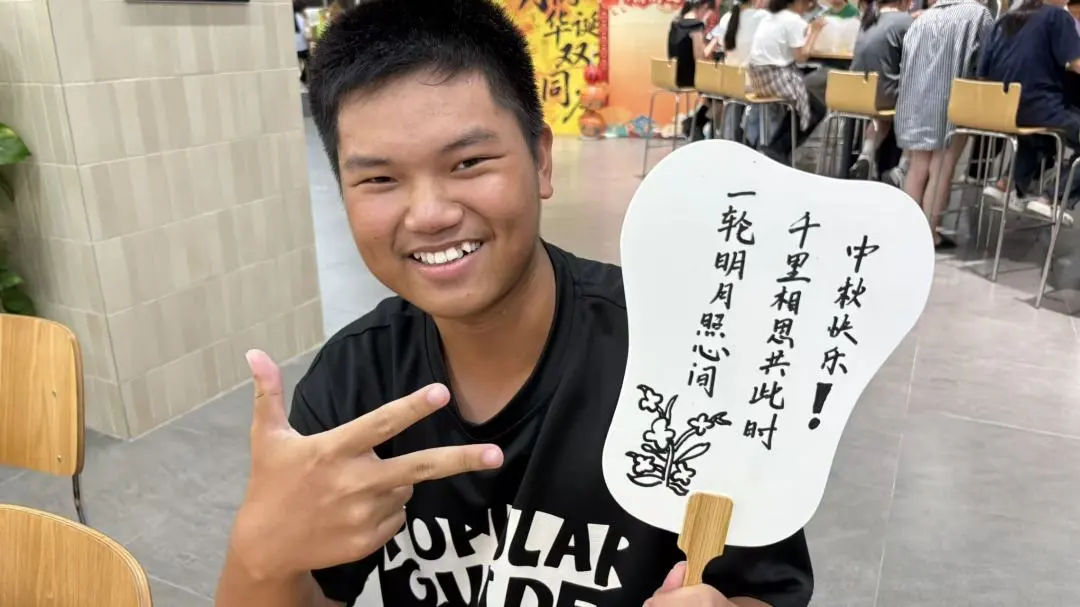 中秋快乐！
千里相思共此时
一轮明月照心间
POPULAR
华诞
双
同